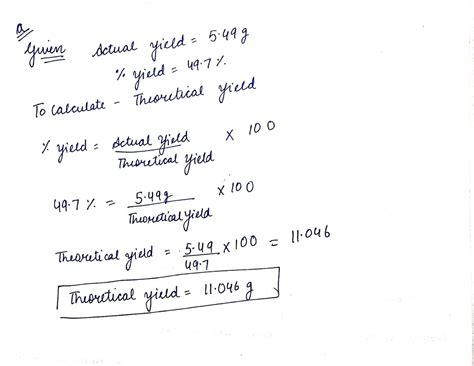 a
Given Actual yield = 5.49 g
% yield = 49.7 %.
To calculate - Theoretical yield
% yield = Actual yield / Theoretical yield × 100
49.7 % = 5.49g / Theoretical yield × 100
Theoretical yield = 5.49 / 49.7 × 100 = 11.046
Theoretical yield = 11.046 g